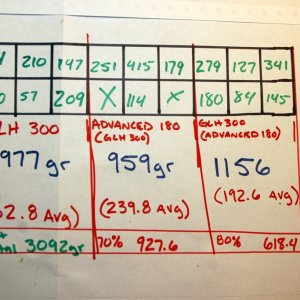 210 197 251 415 179 279 127 341
57 209 X 114 X 180 84 145
LH 300
977gr
2.8 Avg)
+
tal 3092gr
ADVANCED 180
(GLH 300)
959gr
(239.8 Avg)
70% 927.6
GLH 300
(ADVANCED 180)
1156
(192.6 Avg)
80% 618.4